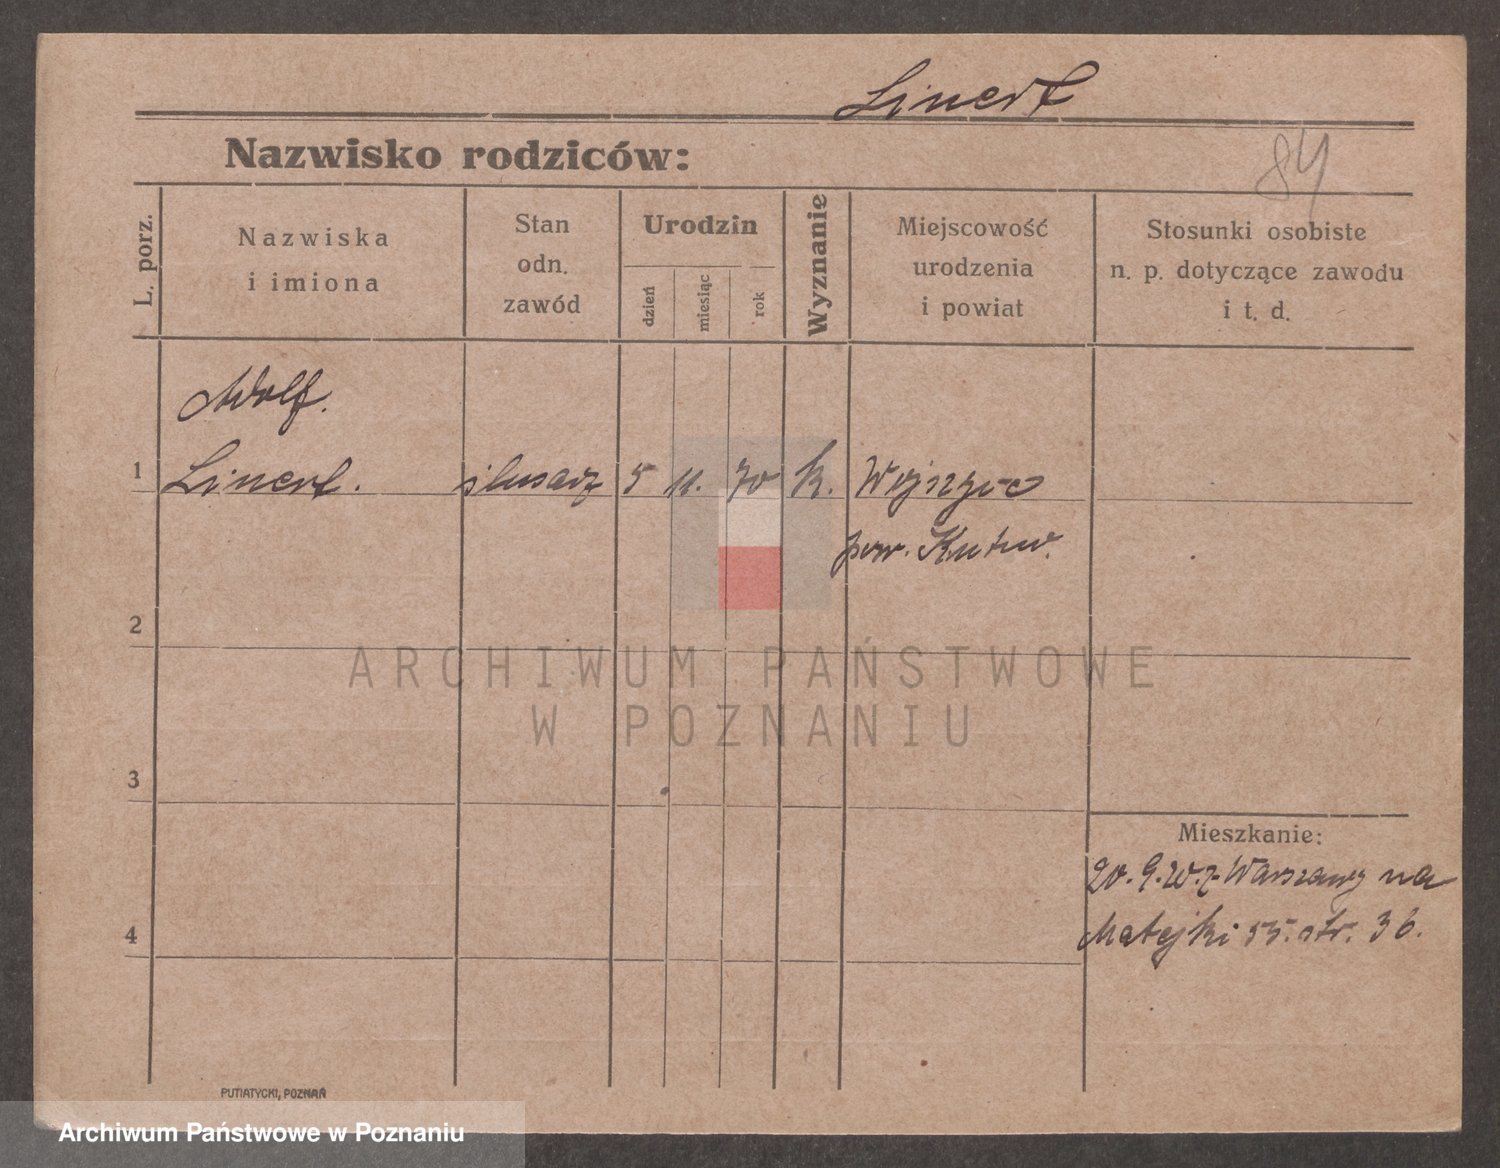 Linert
Nazwisko rodziców:
84
L. porz.
Nazwiska
i imiona
Stan
odn.
zawód
Urodzin
dzień
miesiąc
rok
Wyznanie
Miejscowość
urodzenia
i powiat
Stosunki osobiste
n. p. dotyczące zawodu
i t. d.
Adolf.
1 Linert. ślusarz 5 11. 70 k.
pow. Kutno.
2
ARCHIWUM PAŃSTWOWE
W POZNANIU
3
Mieszkanie:
20. 9. z Warszawy na
4 Matejki 55. str. 36.
PUTIATYCKI, POZNAŃ
Archiwum Państwowe w Poznaniu